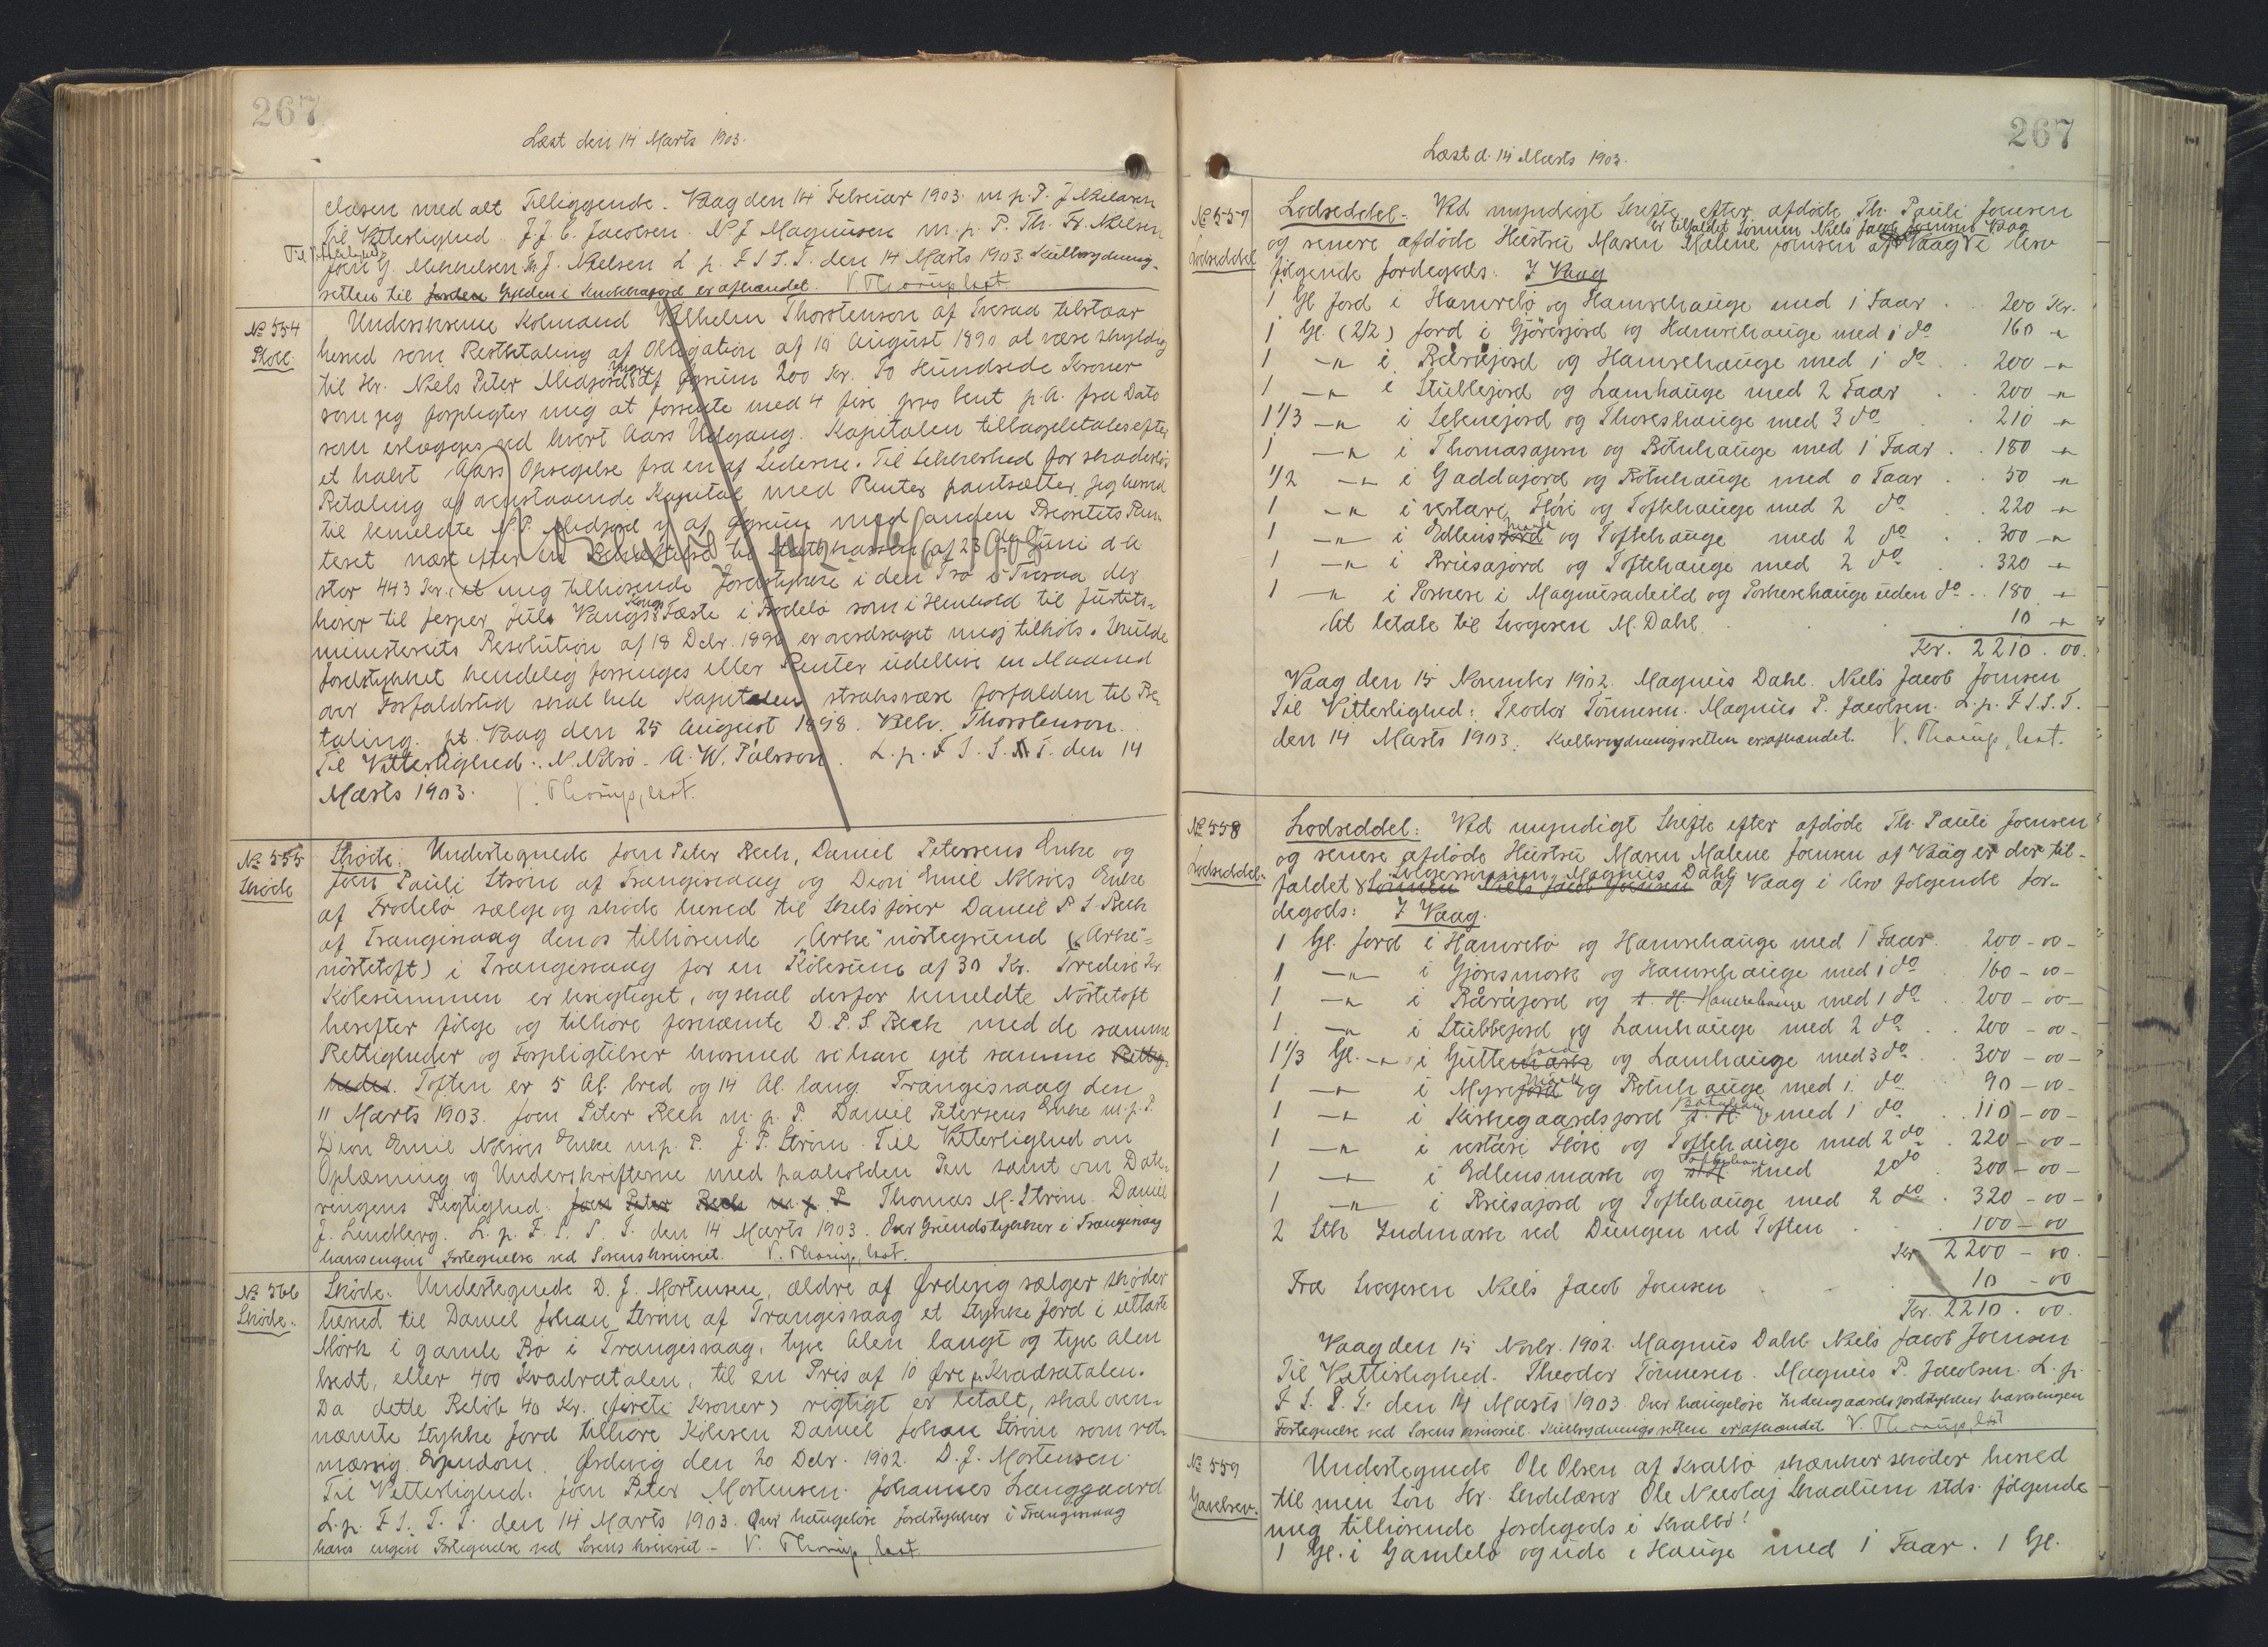 267
Læst den 14 Marts 1903.
elasen med alt Tilliggende. Vaag den 14 Februar 1903. m.p.P. J Nielsen
Til Vitterlighed J.J.C. Jacobsen. N.J Magnusen m.p. P. Th. Fr. Nielsen
Til Vitterlighed
Joen G. Mikkelsen J. Nielsen L. p. F.S.S.T. den 14 Marts 1903. Kulbrydnings-
retten til Jorden Gylden i er afhændet. V. Thorup, kst.
No 554
Undersskrevne Kolmand Vilhelm Thorstenson af Tveraa tilstaar
herved som Restbetaling af Obligation af 10 August 1890 at være skyldig
til Hr. Niels Peter Midjord yngre af Øgrum 200 Kr. To Hundrede Kroner
som jeg forpligter mig at forrente med 4 fire pro Cent p.A. fra Dato
som erlægges ved hvert Aars Udgang. Kapitalen tilbagebetales efter
et halvt Aars Opsigelse fra en af Siderne. Til Sikkerhed for skadesløs
Betaling af ovenstaaende Kapital med Renter pantsætter jeg herved
til bemeldte N.P. Midjord y. af Øgrum med anden Prioritets Pan-
teret næst efter en Beheftelse til Statskassen af 23 Juni d.A
stor 443 Kr. et mig tilhørende Jordstykke i den Trø i Tveraa der
hører til Jesper Juls Vangs Kongs Fæste i Frodebø som i Henhold til Justits-
ministeriets Resolution af 18 Debr. 1896 er overdraget mig tilkøbs. Skulde
Jordstykket hendelig forringes eller Renter udeblive en Maaned
over Forfaldstid skal hele Kapitalen straks være forfalden til Be-
taling. pt. Vaag den 25 August 1898. Vilh. Thorstenson.
Til Vitterlighed: N. Nolsø. A.W. Pálsson. L.p. F.S.S.T. den 14
Marts 1903. V. Thorup, kst.
No 555
Skøde
Skøde. Undertegnede Joen Peter Bech, Daniel Petersens Enke og
Joen Pauli Strøm af Trangisvaag og Dion Emil Nolsøes Enke
af Frodebø sælge og skøde herved til Skibsfører Daniel P. S. Bech
af Trangisvaag den os tilhørende "Arke" nøstegrund ("Arke"=
nøstetoft) i Trangisvaag for en Købesum af 30 Kr. Tredive Kr.
Købesummen er berigtiget, og skal derfor bemeldte Nøstetoft
herefter følge og tilhøre fornævnte D.P.S. Bech med de samme
Rettigheder og Forpligtelser hvormed vi have ejet samme Rettig-
heder. Toften er 5 Al. bred og 14 Al. lang. Trangisvaag den
11 Marts 1903. Joen Peter Bech m.p.P. Daniel Petersens Enke m.p.P.
Dion Emil Nolsøes Enke m.p.P. J.P. Strøm. Til Vitterlighed om
Oplæsning og Underskrifterne med paaholden Pen samt om Date-
ringens Rigtighed. Joen Peter Bech m.p.P Thomas M. Strøm. Daniel
J. Lindberg. L.p. F.S.S.T. den 14 Marts 1903. Over Grundstykker i Trangisvaag
haves ingen Fortegnelse ved Sorenskriveriet. V. Thorup, kst.
No 556
Skøde.
Skøde. Undertegnede D.J. Mortensen, ældre af Ørdevig sælger skøder
herved til Daniel Johan Strøm af Trangisvaag et Stykke Jord i uttaste
Mørk i gamle Bø i Trangisvaag, tyve Alen langt og tyve Alen
bredt, eller 400 Kvadratalen, til en Pris af 10 Øre pr Kvadratalen.
Da dette Beløb 40 Kr. (firti Kroner) rigtigt er betalt, skal oven-
nævnte Stykke Jord tilhøre Køberen Daniel Johan Strøm som ret-
mæssig Ejendom. Ørdevig den 20 Debr. 1902. D.J. Mortensen.
Til Vitterlighed: Joen Peter Mortensen. Johannes Langgaard
L.p. F.S.S.T. den 14 Marts 1903. Over haugeløse Jordstykker i Trangisvaag
haves ingen Fortegnelse ved Sorenskriveriet. V. Thorup, kst.
267
Læst d. 14 Marts 1903.
No 557
Lodseddel
Lodseddel. Ved myndigt Skifte efter afdøde Th. Pauli Joensen
er tilfaldet Sønnen Niels Jacob Joensen Vaag
og senere afdøde Hustru Maren Malene Joensen af Vaag i Arv
følgende Jordegods. I Vaag
1 Gl Jord i Hamrebø og Hamrehauge med 1 Faar . . 200 Kr.
1 Gl. (2/2) Jord i Gjøresjord og Hamrehauge med 1 do 160 "
1 -"- i Båräjord og Hamrehauge med 1 do . . 200 -"
1 -"- i Stubbejord og Lamhauge med 2 Faar . . 200 -"
1 1/3 -"- i Lebnejord og Thoreshauge med 3 do . 210 -"
1 -"- i Thomasajørn og Botnhauge med 1 Faar . . 180 -"
1/2 -"- i Gaddajord og Botnhauge med 0 Faar . . 50 -"
1 -"- i vestare Fløri og Toftehauge med 2 do . 220 -"
1 -"- i Edlensjord mark og Toftehauge med 2 do . . 300 -"
1 -"- i Brúsajord og Toftehauge med 2 do . . 320 -"
1 -"- i Porkere i Magnusadeild og Porkerehauge uden do . . 180 -"
At betale til Svogeren M. Dahl . . . 10 -"
Kr. 2210.00.
Vaag den 15 November 1902. Magnus Dahl. Niels Jacob Joensen
Til Vitterlighed: Teodor Tønnesen. Magnus P. Jacobsen. L.p. F.S.S.T.
den 14 Marts 1903. Kulbrydningsretten er afhændet. V. Thorup, kst.
No 558
Lodseddel.
Lodseddel: Ved myndigt Skifte efter afdøde Th. Pauli Joensen
og senere afdøde Hustru Maren Malene Joensen af Vaag er der til-
Svigersønnen Magnus Dahl
faldet Sønnen Niels Jacob Joensen af Vaag i Arv følgende Jor-
degods: I Vaag.
1 Gl. Jord i Hamrebø og Hamrehauge med 1 Faar. 200-00-
1 -"- i Gjøresmork og Hamrehauge med 1 do . 160-00-
1 -"- i Båräjord og t. H. Hamrehauge med 1 do . 200-00-
1 -"- i Stubbejord og Lamhauge med 2 do . . 200-00-
1 1/3 Gl. -"- i Guttemark jord og Lamhauge med 3 do . 300-00-
1 -"- i Myrejord mark og Botnhauge med 1 do . 90-00-
1 -"- i Kirkegaardsjord Botnhau t. H. med 1 do . . 110-00-
1 -"- i vestari Fløre og Toftehauge med 2 do . 220-00-
1 -"- i Edlensmark og Toftehau med 2 do . 300-00-
1 -"- i Brúsajord og Toftehauge med 2 do . 320-00-
2 Stk Indmark ved Dungen ved Toften . . 100-00
Kr 2200-00.
Fra Svogeren Niels Jacob Joensen . . 10-00
Kr. 2210.00.
Vaag den 15 Novbr. 1902. Magnus Dahl Niels Jacob Joensen
Til Vitterlighed. Theodor Tønnesen. Magnus P. Jacobsen. L.p.
F.S.S.T. den 14 Marts 1903. Over haugeløse Indengaardsjordstykker haves ingen
Fortegnelse ved Sorenskriveriet. Kulbrydningsretten er afhændet V. Thorup, kst
No 559
Gavebrev.
Undertegnede Ole Olsen af Kvalbø skænker skøder herved
til min Søn Hr. Skolelærer Ole Nicolaj Skaalum stds. følgende
mig tilhørende Jordegods i Kvalbø!
1 Gl. i Gamlebø og ude i Hauge med 1 Faar. 1 Gl.